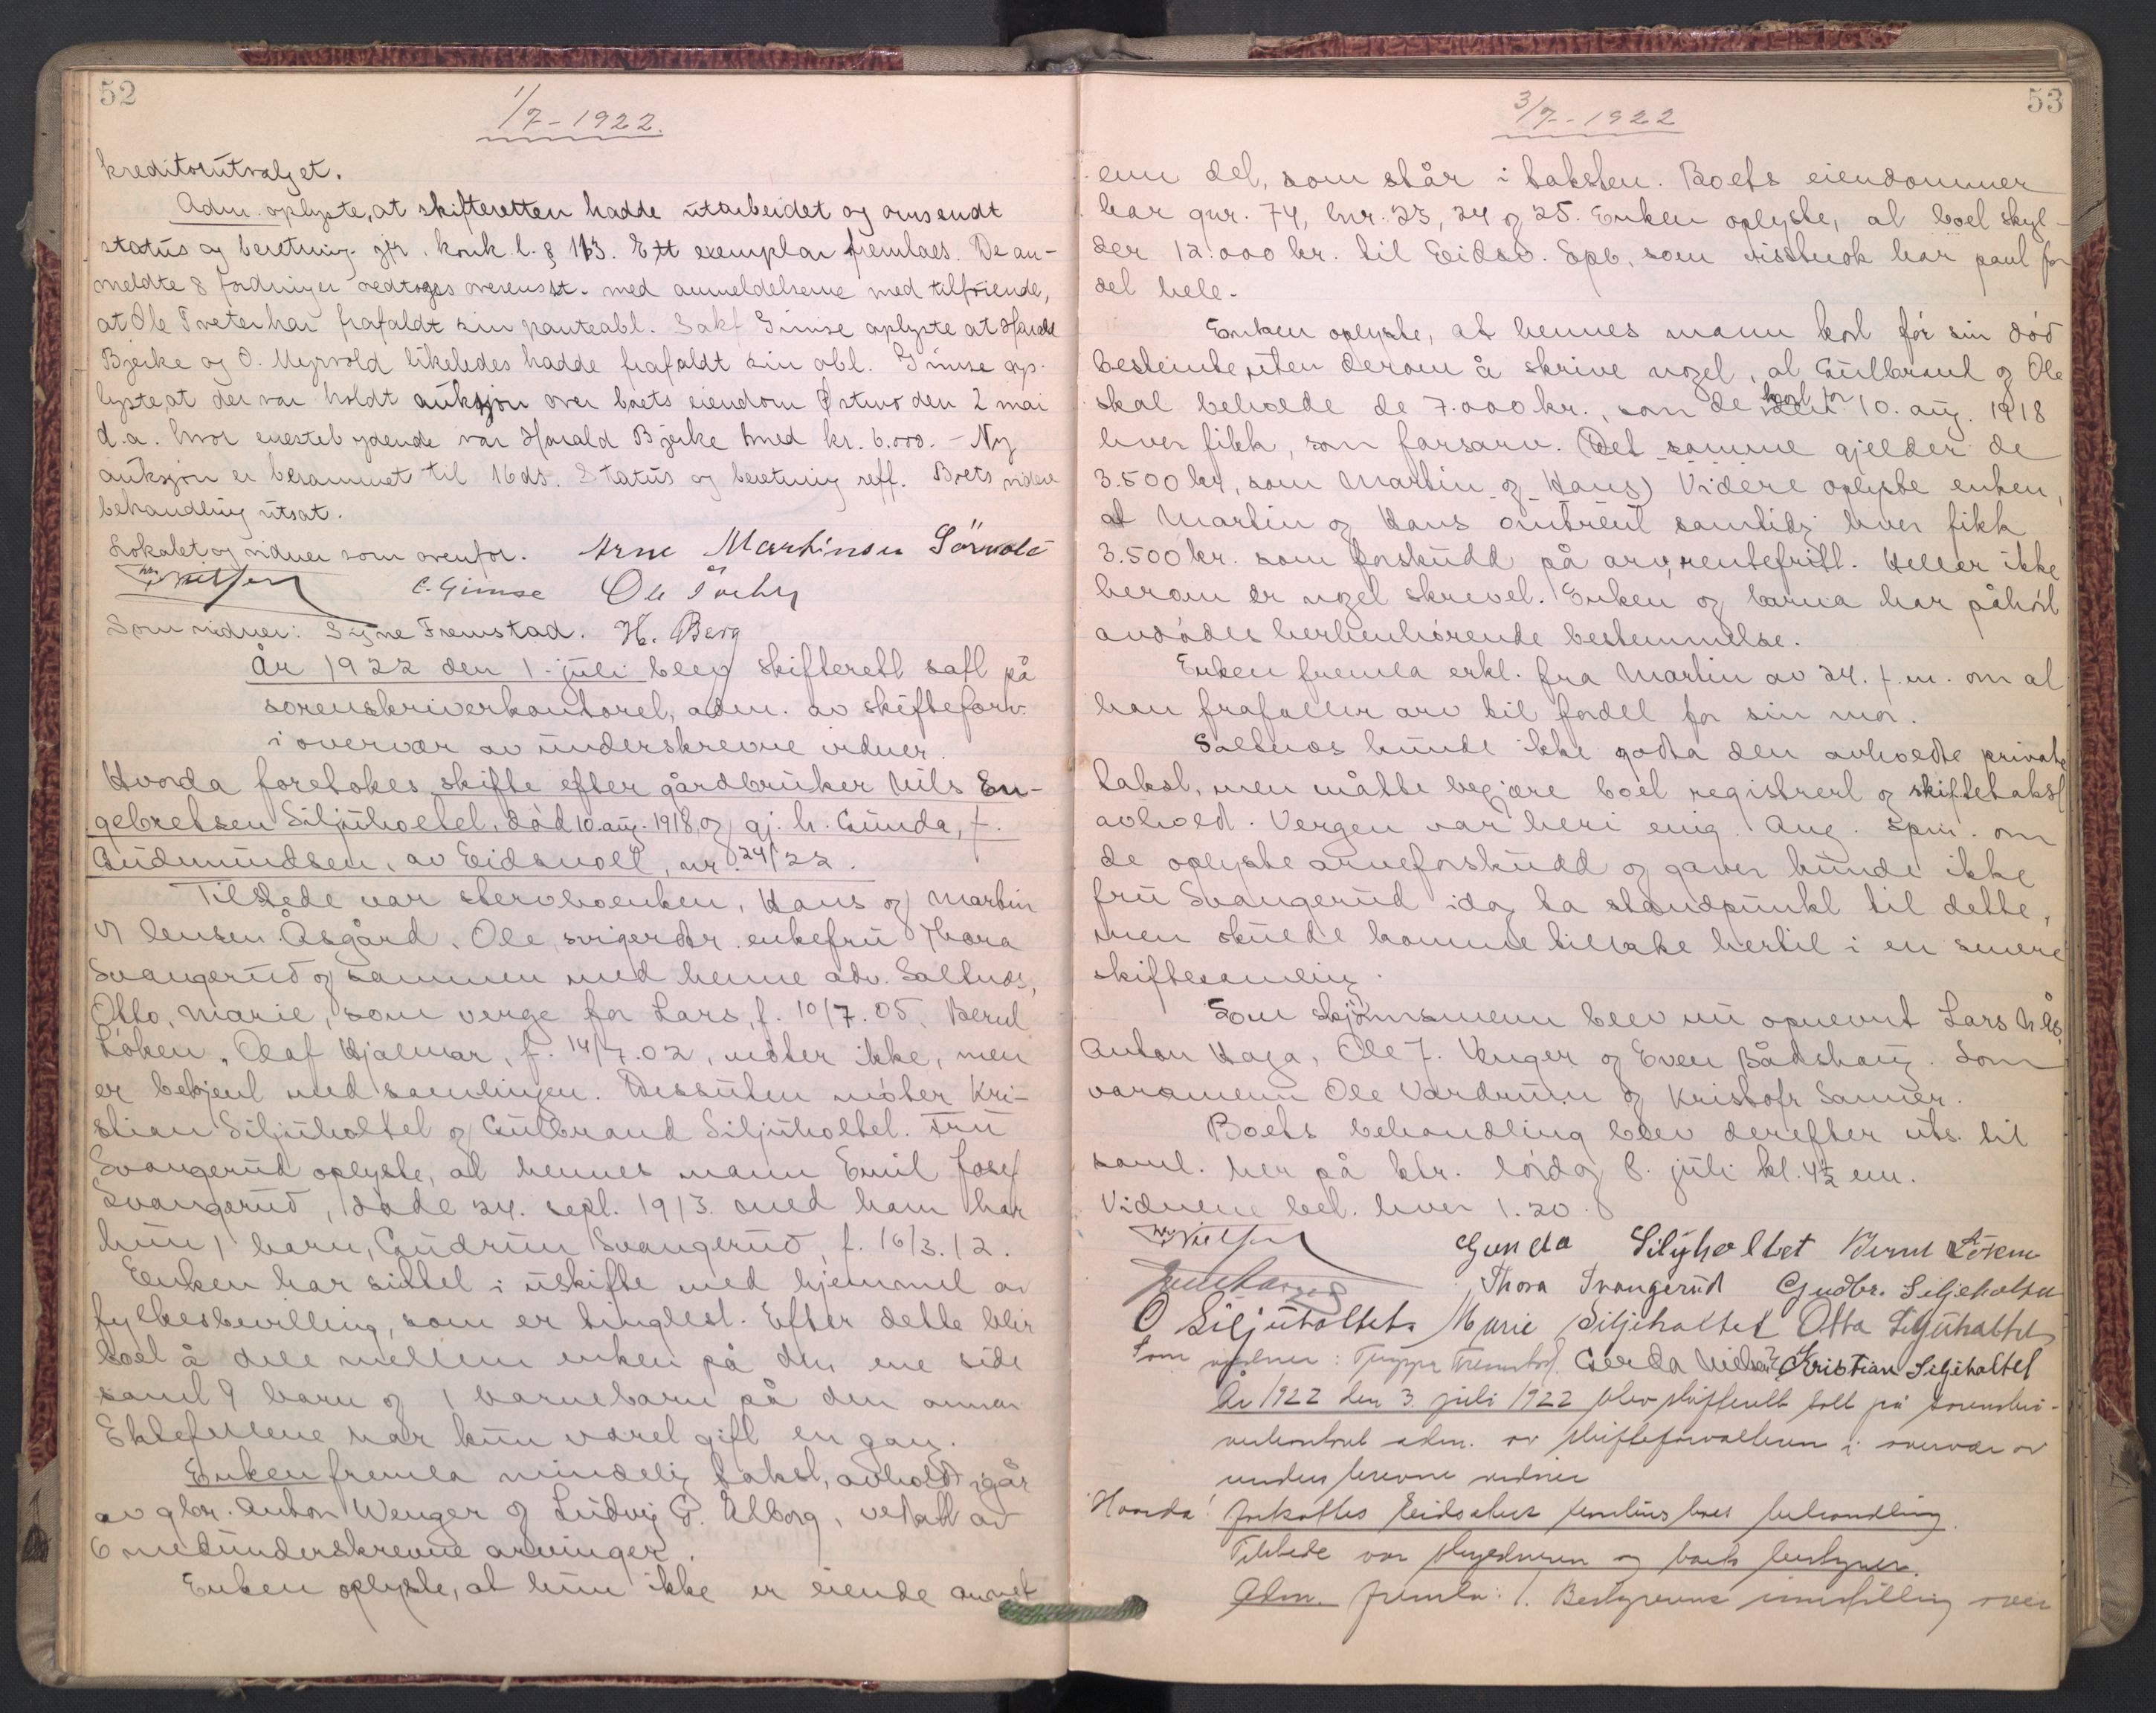 52
1/7-1922.
kreditorutvalget.
Adm. oplyste, at skifteretten hadde utarbeidet og omsendt
status og beretning gjr. konk. l. § 113. Ett exemplar fremlaes. De an-
meldte 8 fordringer vedtoges overensst. med anmeldelserne med tilføiende,
at Ole Tveter har frafaldt sin panteobl. Sakf Gimse oplyste at Harald
Bjerke og O. Myrvold likeledes hadde frafaldt sin obl. Gimse op-
lyste, at der var holdt auksjon over boets eiendom den 2 mai
d.a. hvor enestebydende var Harald Bjerke med kr. 6.000. - Ny
auksjon er berammet til 16 ds. Status og beretning reff. Boets videre
behandling utsat.
Lokalet og vidner som ovenfor. Arne Martinsen
C. Gimse Ole
Som vidner: Signe Fremstad. H. Berg
År 1922 den 1. juli blev skifterett satt på
sorenskriverkontoret, adm. av skifteforv.
i overvær av underskrevne vidner.
Hvorda foretokes skifte efter gårdbruker Nils En-
gebretsen Siljuholtet, død 10. aug. 1918, og gj. h. Gunda, f.
Gudmundsen, av Eidsvoll, nr. 24/22.
Tilstede var stervboenken, Hans og Martin
Åsgård, Ole, svigerdtr. enkefru Thora
Svangerud og sammen med henne adv. Saltnes,
Otto, Marie, som verge for Lars, f. 10/7.05, Bernt
Løken. Olaf Hjalmar, f. 14/7.02, møter ikke, men
er bekjent med samlingen. Dessuten møter Kri-
stian Siljuholtet og Gulbrand Siljuholtet. Fru
Svangerud oplyste, at hennes mann Emil Josef
Svangerud, døde 24. sept. 1913. Med ham har
hun 1 barn, Gudrun Svangerud, f. 16/3.12.
Enken har sittet i uskifte med hjemmel av
fylkesbevilling, som er tinglest. Efter dette blir
boet å dele mellem enken på den ene side
samt 9 barn og 1 barnebarn på den annen
Ektefellene har kun været gift en gang.
Enken fremla mindelig takst, avholdt igår
av gbr. Anton Wenger og Ludvig G. Elborg, vedtatt av
6 medunderskrevne arvinger.
Enken oplyste, at hun ikke er eiende annet
53
3/7-1922
enn det, som står i taksten. Boets eiendommer
har gnr. 74, bnr. 23, 24 og 25. Enken oplyste, at boet skyl-
der 12.000 kr. til Eidsv. Spb. som visstnok har pant for
det hele.
Enken oplyste, at hennes mann kort før sin død
bestemte, uten derom å skrive noget, at Gulbrand og Ole
skal beholde de 7.000 kr., som de kort før 10. aug. 1918
hver fikk, som farsarv. (Det samme gjelder de
3.500 kr, som Martin og Hans) Videre oplyste enken,
at Martin og Hans omtrent samtidig hver fikk
3.500 kr. som forskudd på arv, rentefritt. Heller ikke
herom er noget skrevet. Enken og barna har påhørt
avdødes herhenhørende bestemmelse.
Enken fremla erkl. fra Martin av 24. f.m. om at
han frafaller arv til fordel for sin mor.
Saltnes kunde ikke godta den avholdte private
takst, men måtte begjære boet registrert og skiftetakst
avholdt. Vergen var heri enig. Ang. spm. om
de oplyste arveforskudd og gaver kunde ikke
fru Svangerud idag ta standpunkt til dette,
men skulde komme tilbake hertil i en senere
skiftesamling.
Som skjønnsmenn blev nu opnevnt Lars N. Ås,
Anton Haga, Ole J. Venger og Even Bådshaug. Som
varamenn Ole Vardrum og Kristofr Sanner.
Boets behandling blev derefter uts. til
saml. her på ktr. lørdag 8. juli kl. 4½ em.
Vidnene bet. hver 1.20.
Gunda Siljuholtet Bernt Løken
Thora Svangerud Gudbr. Siljeholtet
O Siljuholtet Marie Siljeholtet Otto Siljuholtet
Som vidner: Fremstad. Gerda Nielsen Kristian Siljeholtet
År 1922 den 3. juli 1922 blev skifterett satt på sorenskri-
verkontoret adm. av skifteforvalteren i overvær av
underskrevne vidner
Hvorda: fortsattes boets behandling.
Tilstede var og boets bestyrer.
Adm. fremla: 1. Bestyrerens innstilling over